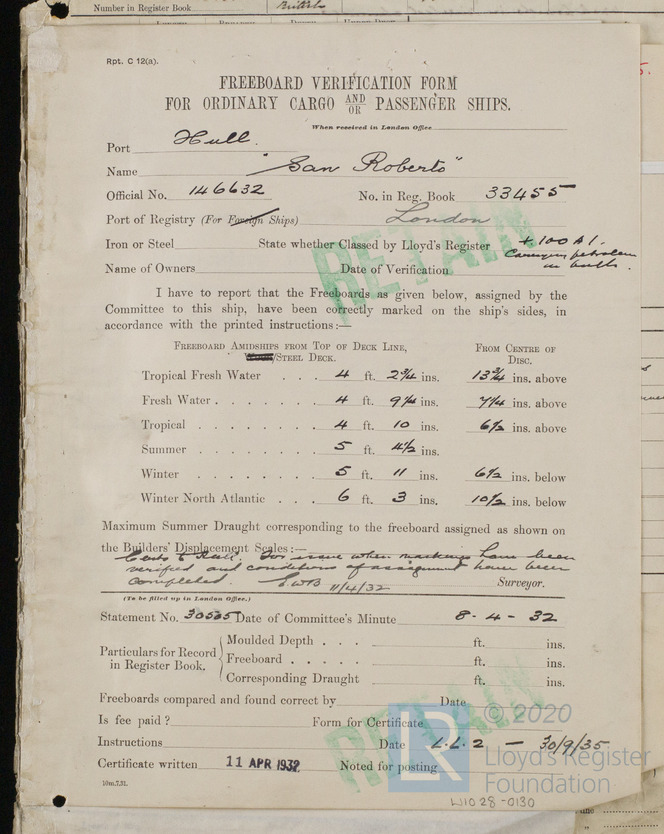 Number in Register Book
British
Rpt. C 12(a).
FREEBOARD VERIFICATION FORM
FOR ORDINARY CARGO AND OR PASSENGER SHIPS.
When received in London Office
Port Hull.
Name "San Roberto"
Official No. 146632 No. in Reg. Book 33455
Port of Registry (For Foreign Ships) London
Iron or Steel State whether Classed by Lloyd's Register +100A1.
Carrying petroleum
in bulk.
Name of Owners Date of Verification
RETAIN
I have to report that the Freeboards as given below, assigned by the
Committee to this ship, have been correctly marked on the ship's sides, in
accordance with the printed instructions:—
Freeboard Amidships from Top of Deck Line, From Centre of
/Steel Deck. Disc.
Tropical Fresh Water . . . 4 ft. 2¾ ins. 13¾ ins. above
Fresh Water . . . . . . . 4 ft. 9¼ ins. 7¼ ins. above
Tropical . . . . . . . . 4 ft. 10 ins. 6½ ins. above
Summer . . . . . . . . 5 ft. 4½ ins.
Winter . . . . . . . . 5 ft. 11 ins. 6½ ins. below
Winter North Atlantic . . . 6 ft. 3 ins. 10½ ins. below
Maximum Summer Draught corresponding to the freeboard assigned as shown on
the Builders' Displacement Scales:—
Certs to Hull. For issue when markings have been
verified and conditions of assignment have been
completed. 11/4/32 Surveyor.
(To be filled up in London Office.)
Statement No. 30505 Date of Committee's Minute 8-4-32
Particulars for Record in Register Book.
Moulded Depth . . . ft. ins.
Freeboard . . . . . ft. ins.
Corresponding Draught ft. ins.
Freeboards compared and found correct by Date
Is fee paid? Form for Certificate
Instructions Date L.L.2 — 30/9/35
Certificate written 11 APR 1932 Noted for posting
RETAIN
10m.7.31.
© 2020
LR
Lloyd's Register
Foundation
W1028-0130